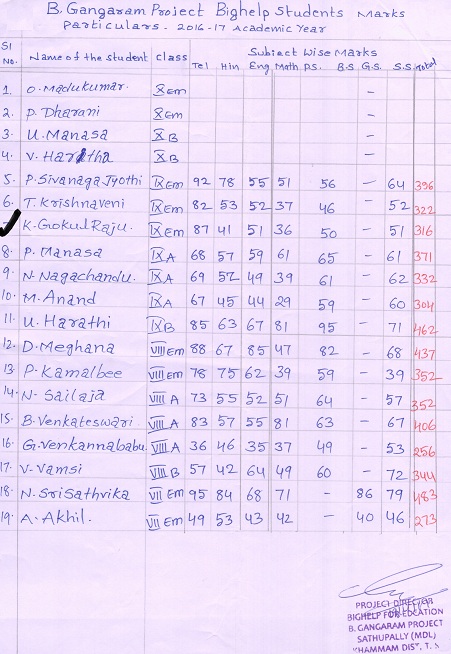 B. Gangaram Project Bighelp Students Marks
Particulars. 2016-17 Academic Year
Sl No. Name of the student Class Subject Wise Marks
Tel Hin Eng Math PS. B.S G.S. S.S Total
1. O. Madukumar. X Em -
2. P. Dharani X Em -
3. U. Manasa X B -
4. V. Haritha X B -
5. P. Sivanaga Jyothi IX Em 92 78 55 51 56 - 64 396
6. T. Krishnaveni IX Em 82 53 52 37 46 - 52 322
K. Gokul Raju. IX Em 87 41 51 36 50 - 51 316
8. P. Manasa IX A 68 57 59 61 65 - 61 371
9. N. Nagachandu. IX A 69 52 49 39 61 - 62 332
10. M. Anand IX A 67 45 44 29 59 - 60 304
11. U. Harathi IX B 85 63 67 81 95 - 71 462
12. D. Meghana VIII Em 88 67 85 47 82 - 68 437
13. P. Kamalbee VIII Em 78 75 62 39 59 - 39 352
14. N. Sailaja VIII A 73 55 52 51 64 - 57 352
15. B. Venkateswari. VIII A 83 57 55 81 63 - 67 406
16. G. Venkannababu VIII A 36 46 35 37 49 - 53 256
17. V. Vamsi VIII B 57 42 64 49 60 - 72 344
18. N. Sri Sathvika VII Em 95 84 68 71 - 86 79 483
19. A. Akhil. VII Em 49 53 43 42 - 40 46 273
PROJECT DIRECTOR
BIGHELP FOR EDCATION
B. GANGARAM PROJECT
SATHUPALLY (MDL)
KHAMMAM DIST, T. S